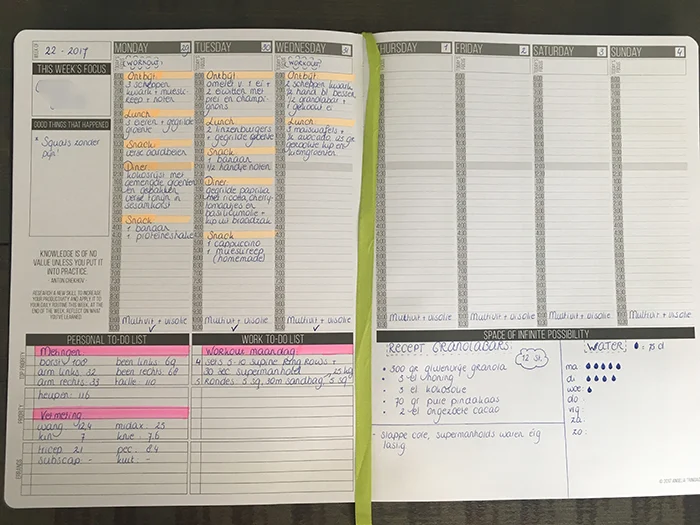 WEEK OF
22 - 2017
THIS WEEK'S FOCUS
GOOD THINGS THAT HAPPENED
* Squats zonder
pijn!
KNOWLEDGE IS OF NO
VALUE UNLESS YOU PUT IT
INTO PRACTICE.
- ANTON CHEKHOV
RESEARCH A NEW SKILL TO INCREASE
YOUR PRODUCTIVITY AND APPLY IT TO
YOUR DAILY ROUTINE THIS WEEK. AT
THE END OF THE WEEK, REFLECT ON WHAT
YOU'VE LEARNED
MONDAY 29
WORKOUT
Ontbijt
3 scheppen
kwark + muesli-
reep + noten
Lunch
3 eieren + gegrilde
groente
Snack
verse aardbeien
Diner
kokosrijst met
gemengde groenten
en gebakken
verse tonijn in
sesamkorst
Snack
1 banaan
1 proteineshake
Multivit + visolie
TUESDAY 30
Ontbijt
omelet v 1 ei +
2 eiwitten met
prei en champi-
gnons
Lunch
2 linzenburgers
+ gegrilde groente
Snack
1 banaan
1/2 handje noten
Diner
gegrilde paprika
met ricotta, cherry-
tomaatjes en
basilicumolie +
kip uit braadzak
Snack
1 cappuccino
+ muesireep
(homemade)
Multivit + visolie
WEDNESDAY 31
WORKOUT
Ontbijt
2 scheppen kwark
1/2 hand bl. bessen
1/2 granolabar +
1 gekookt ei
Lunch
3 maiswafels +
1/2 avocado, 125 gr
gerookte kip en
kiemgroenten
Multivit + visolie
THURSDAY 1
Multivit + visolie
FRIDAY 2
Multivit + visolie
SATURDAY 3
Multivit + visolie
SUNDAY 4
Multivit + visolie
PERSONAL TO-DO LIST
TOP PRIORITY
Metingen
borst 108 been links 69
arm links 32 been rechts 68
arm rechts 33 taille 110
heupen: 116
PRIORITY
Vetmeting
wang 12,4 midax. 25
kin 7 knie 7,6
tricep 21 pec. 8,4
ERRANDS
subscap - kuit -
WORK TO-DO LIST
Workout maandag
4 sets 5-10 supine Ring rows +
30 sec supermanhold 25 kg
5 rondes 5 sq, 30m sandbag, 5 sq
SPACE OF INFINITE POSSIBILITY
RECEPT GRANOLABARS:
12 st.
• 300 gr glutenvrije granola
• 3 el honing
• 3 el kokosolie
• 70 gr pure pindakaas
• 2 el ongezoete cacao
- slappe core, supermanholds waren erg
lastig
WATER: = 75 cl
ma
di
woe
do
vrij
za
zo